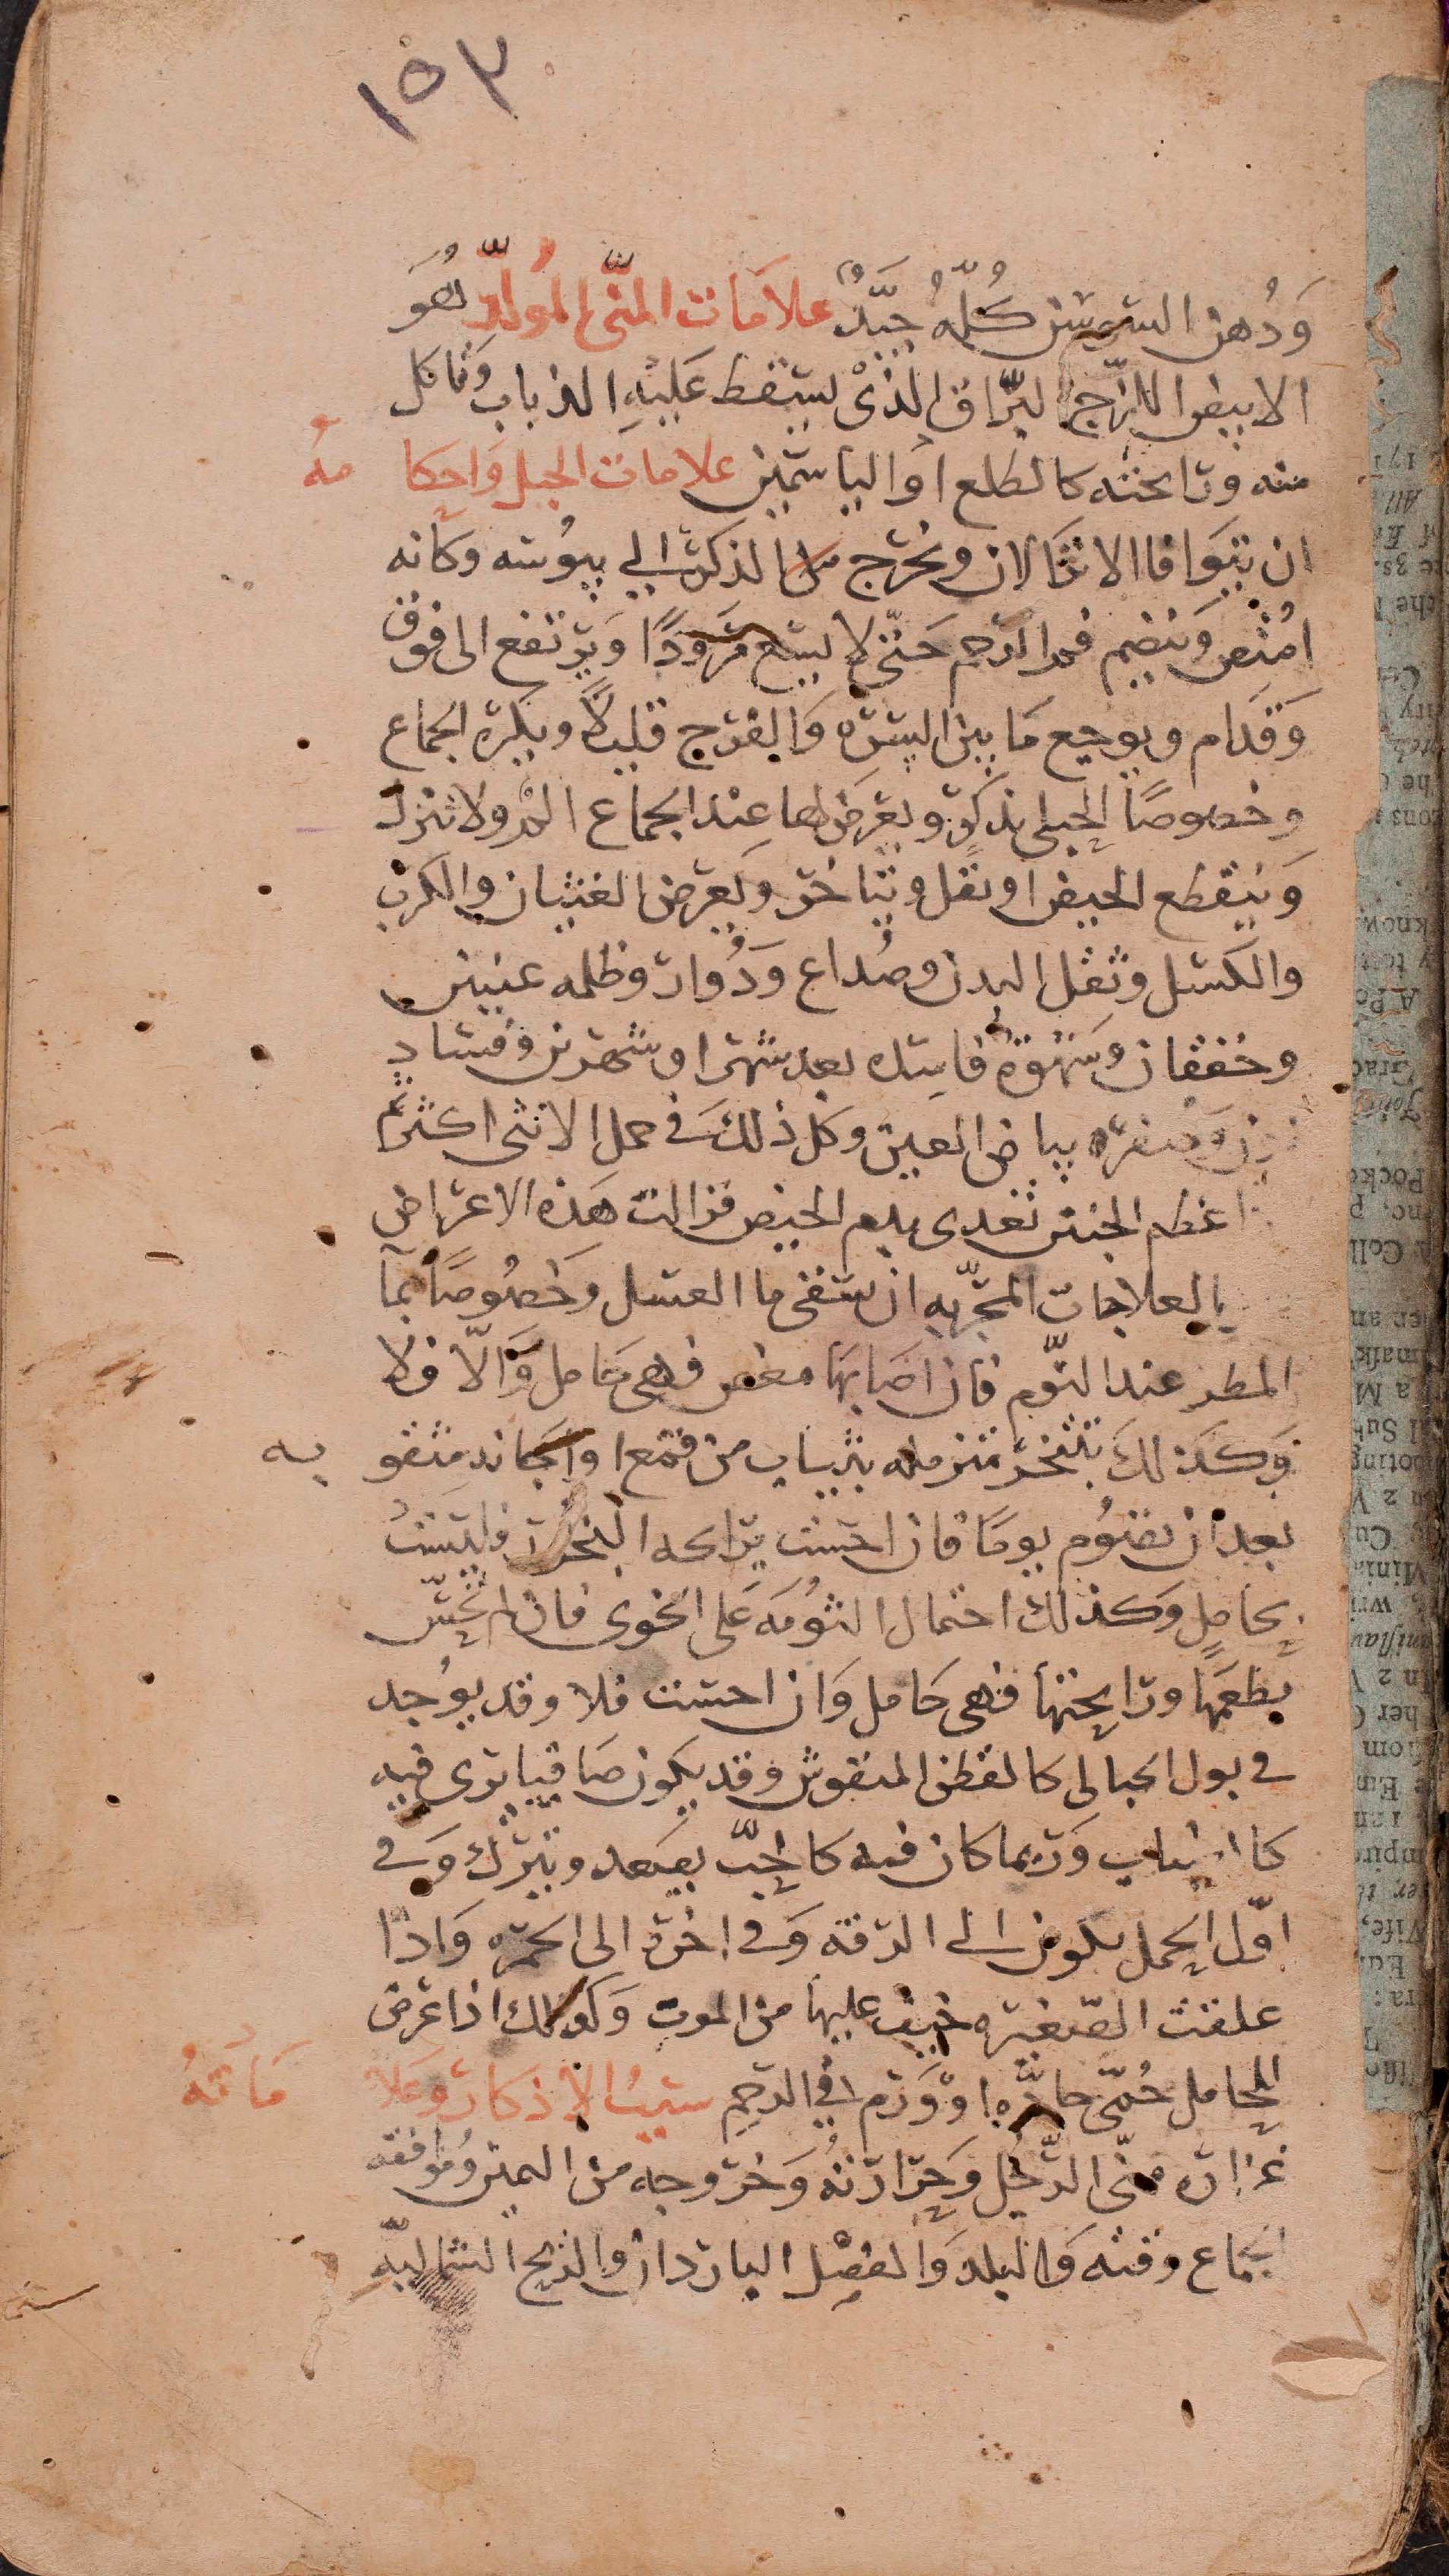 ١٥٣
وَدُهن السوسن كُلّهُ جيّدٌ علامَات المنّي المُولّدِ هُوَ
الابيض اللزّج البرّاق الذى يسقط عَليْهِ الذباب وَياكل
منه ورايحته كالطلع اوالياسمين علامات الحبل وَاحكامهُ
ان يتوَافا الانزَالان ويخرج الذكر الي يبوُسه وكانه
امُتص وَينضم فم الرحم حَتّى لا يسع مرودًا وَيرتفع الى فوق
وَقدام ويوجع مَا بين السره وَالفرج قليلاً ويكره الجماع
وخصوصًا الحبلى بذكر ويعرَض لها عِند الجماع الم ولا تنزل
وَينقطع الحيض او يقل ويتاخر وَيعرض الغثيان والكرب
والكسل وثقل البدن وصُداع وَدُوار وظلمه عينين
وخفقان وَشهوة فاسده بعد شهر او شهرين وفساد
لون وَصفره بياض العين وكل ذلكَ في حمل الانثى اكثر ثم
اذا عظم الجنين تغدى بدم الحيض فزالت هَذه الاعراض
بالعلاجات المجرّبه ان تسقى ما العسل وخصُوصًا بمآ
المطر عند النوّم فان اصَابهَا مغص فهى حَامل وَالّا فلا
وَكذلكَ تتبخر متزمله بثياب من قمع او اجانه مثقوبه
بعد ان تصُوم يومًا فان احست برايحه البخور فليستُ
بحاملٍ وَكذلك احتمال الثوُمَه عَلى الخوى فان لم تحسّ
بطعمهَا ورايحتها فهى حَامل وَان احست فلا وقد يوُجد
في بول الحبالى كالقطن المنفوش وقد يكون صَافيا يرى فيه
كالضباب وَربما كان فيه كالحبّ يصعد وينزل وَفي
اوّل الحمل يكون الى الزرقه وَفي اخرهُ الى الحمره وَاذا
علقت الصّغيره خيف عليها من الموت وَكذلك اذا عرض
للحامل حُمّى حادّه او وَرَم في الرحِم سببُ الاذكار وعَلامَاتهُ
غزاره منّي الرّجُل وَحَرارتهُ وَخروجه من اليمين وُموافقه
الجماع وقته وَالبلد وَالفصْل الباردان والريح الشماليّه